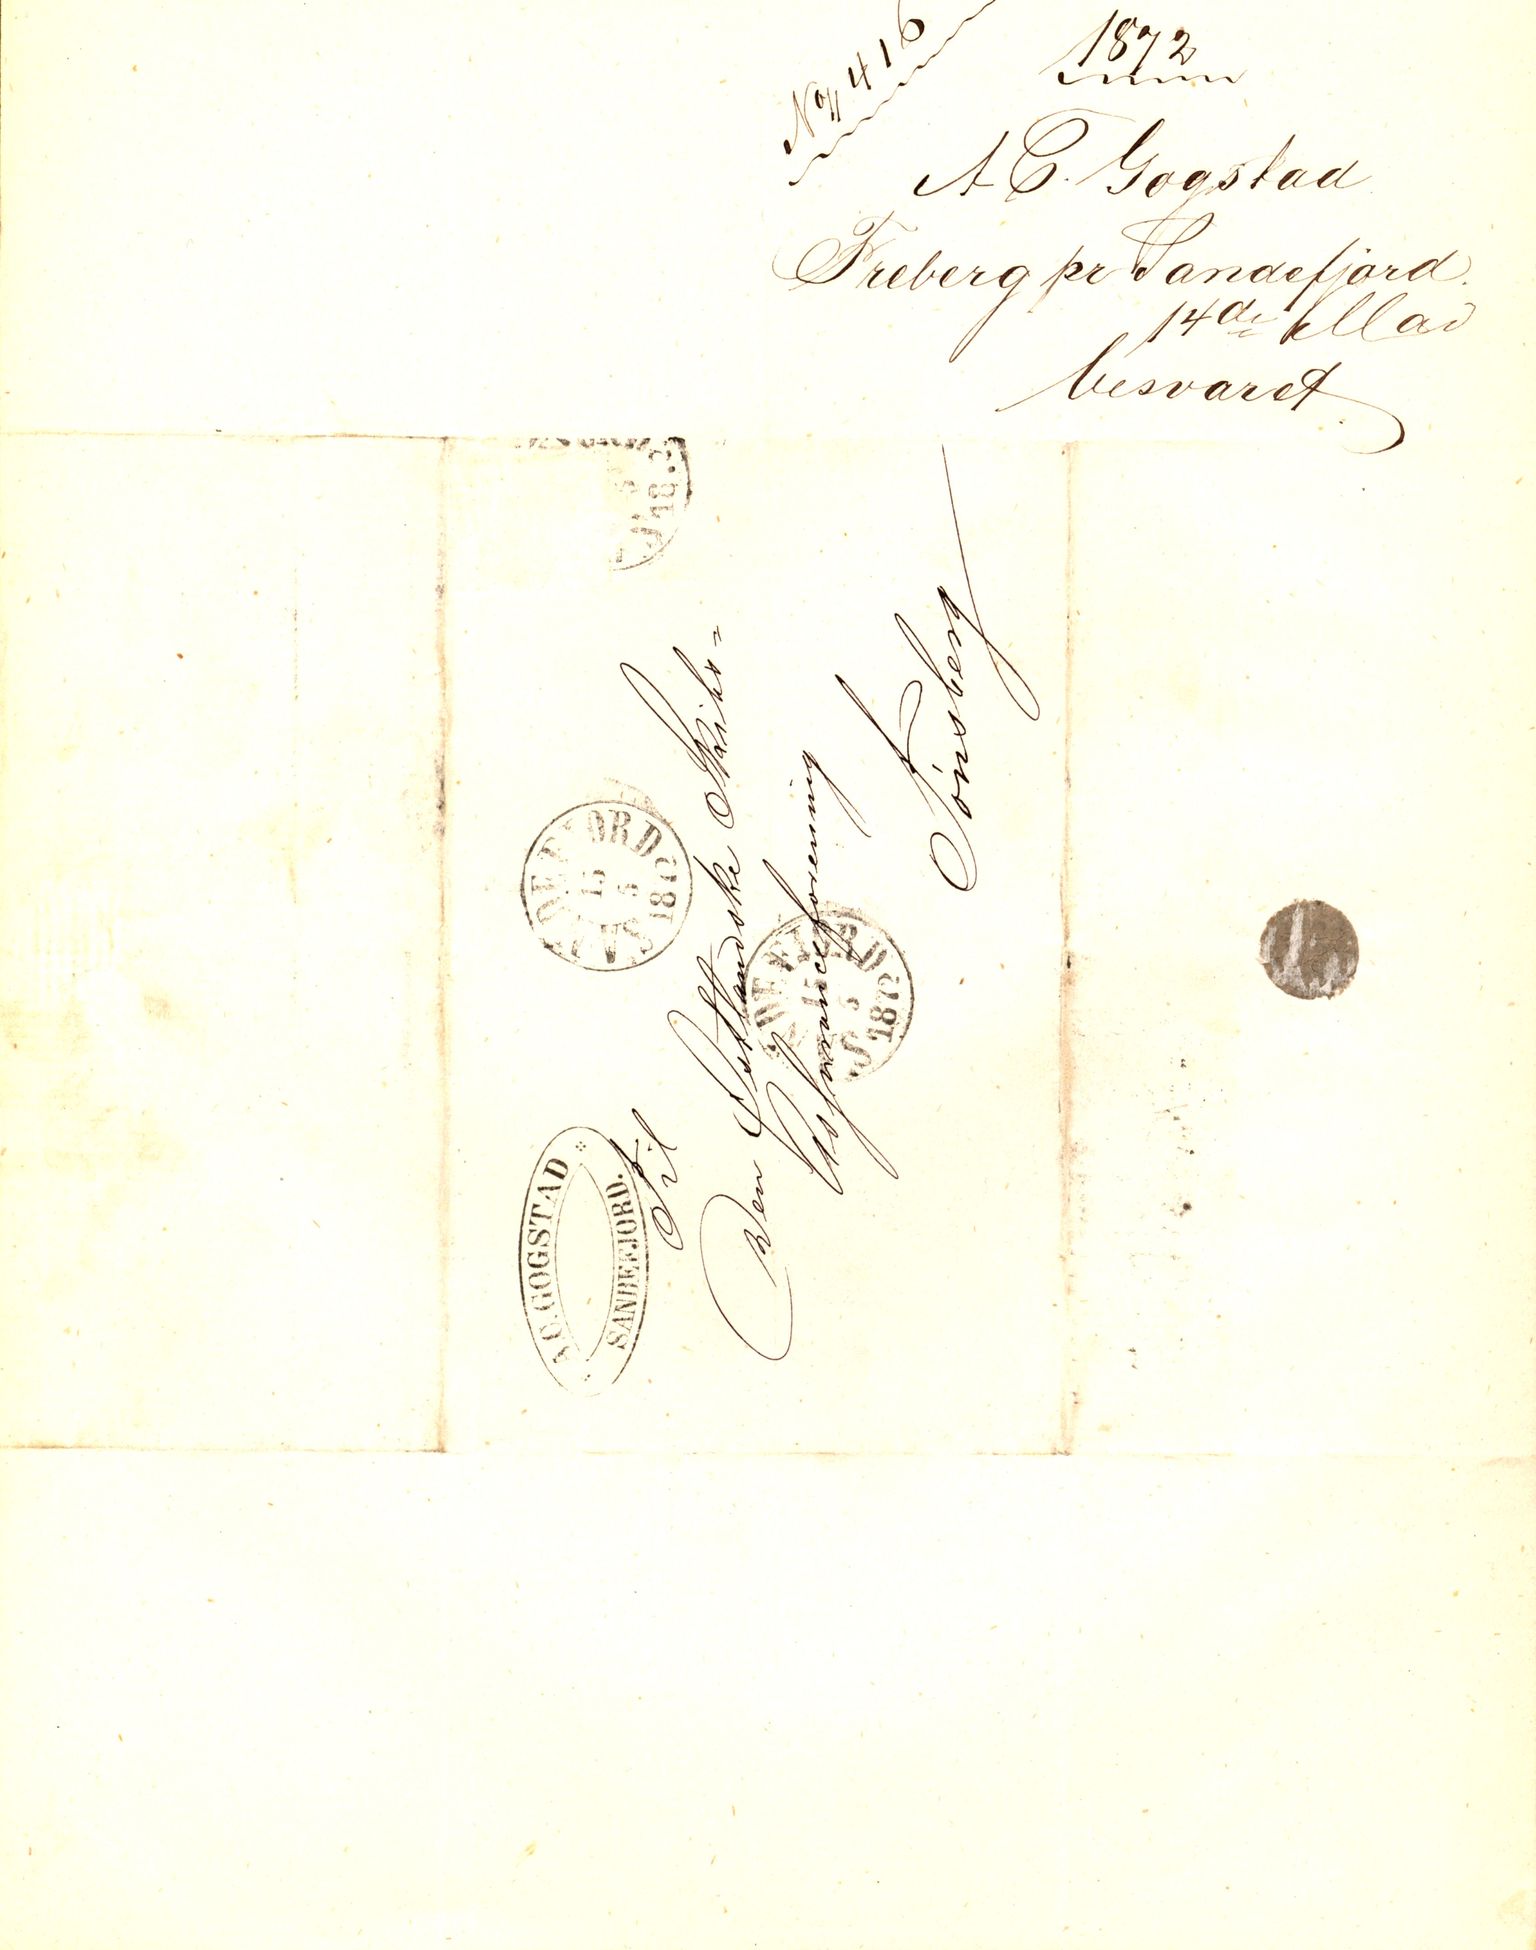 No 416
1872
A C. Gogstad
Freberg pr Sandefjord.
14de Mai
besvaret
A.C. GOGSTAD
SANDEFJORD.
SANDEFJORD
15
5
1872
Til
Den Østlandske Skibs-
Assuranceforening
Tønsberg
SANDEFJORD
15
5
1872